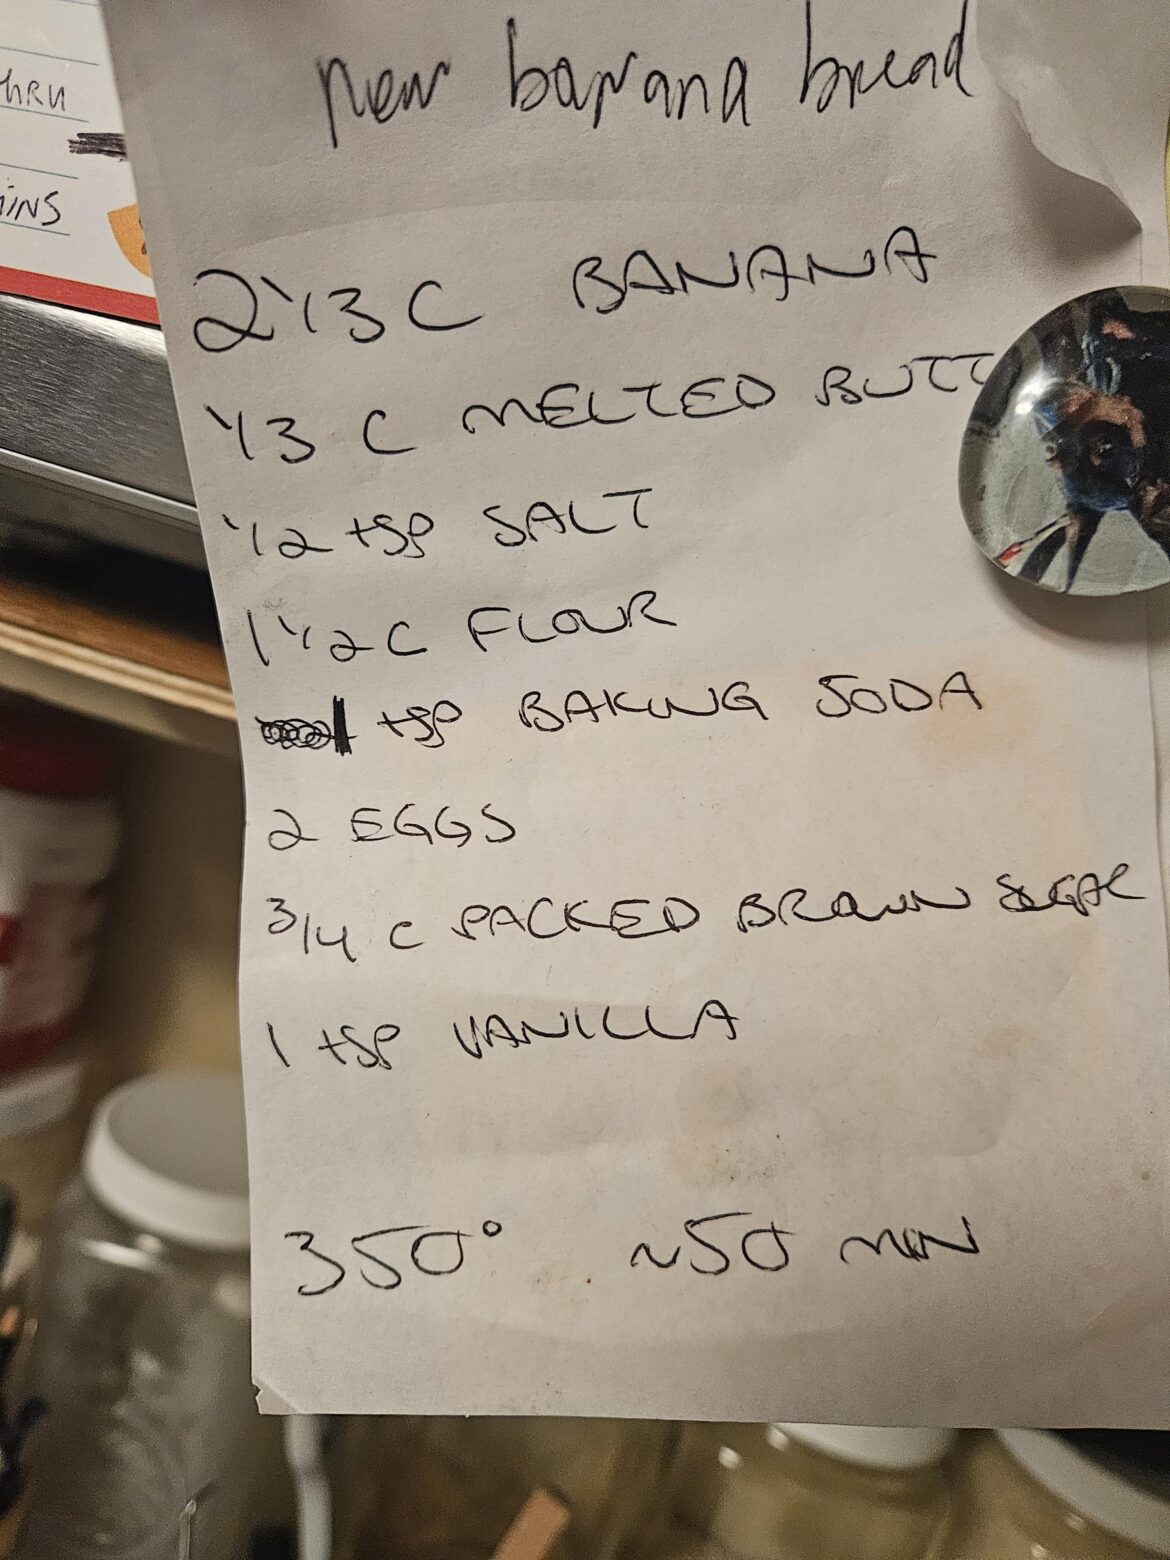 new banana bread
2 1/3 C BANANA
1/3 C MELTED BUTT
1/2 tsp SALT
1 1/2 C FLOUR
1 tsp BAKING SODA
2 EGGS
3/4 C PACKED BROWN SUGAR
1 tsp VANILLA
350° ~50 MIN
THRU